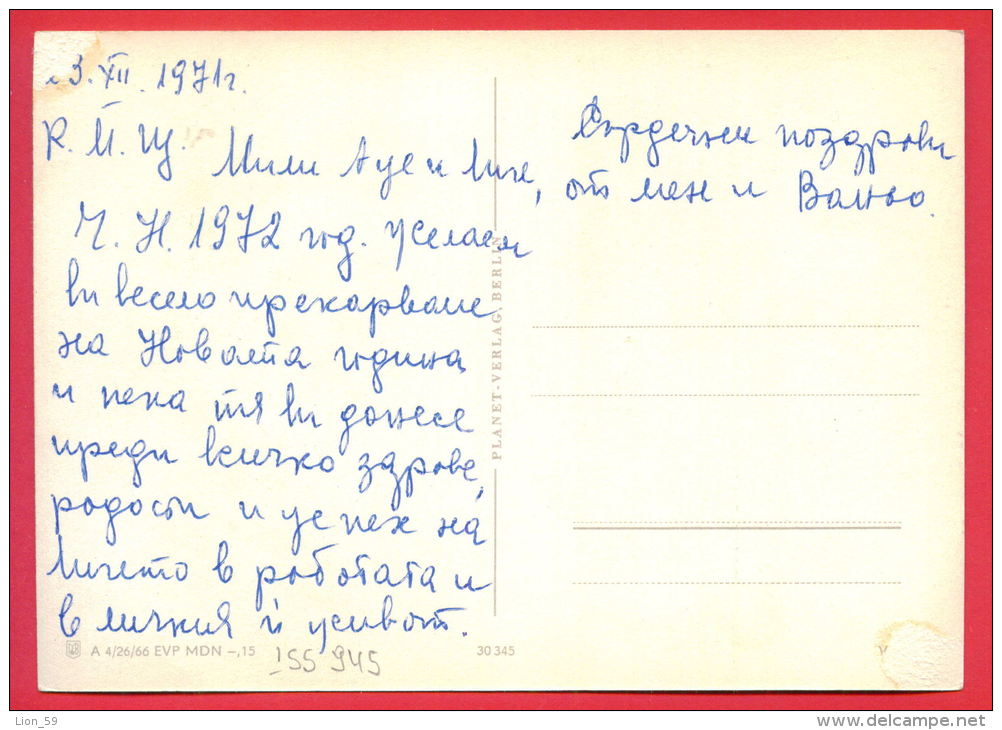 3. XII. 1971г.
К. М. Щ. Мили Ауе и Личе,
Ч. Н. 1972 год. Желаем
ви весело прекарване
на Новата година
и нека тя ви донесе
преди всичко здраве,
радост и успех на
Личето в работата и
в личния ѝ живот.
Сърдечни поздрави
от мен и Вальо.
PLANET-VERLAG, BERLIN
A 4/26/66 EVP MDN –,15
30 345
155 945
Lion_59
www.delcampe.net